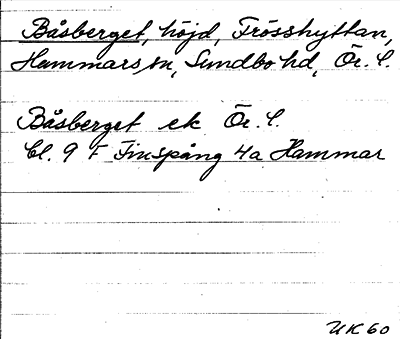 Båsberget, höjd, Trösshyttan,
Hammars sn, Sundbo hd, Ör. l.
Båsberget ek Ör. l.
bl. 9 F Finspång 4a Hammar
UK 60